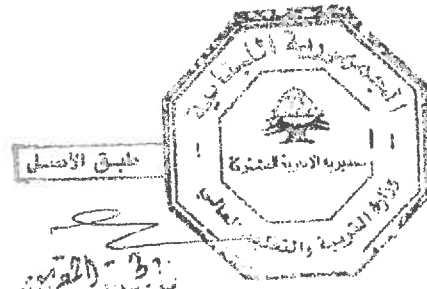 الجمهورية اللبنانية
مديرية الادارية المشتركة
وزارة التربية والتعليم العالي
طبق الأصل